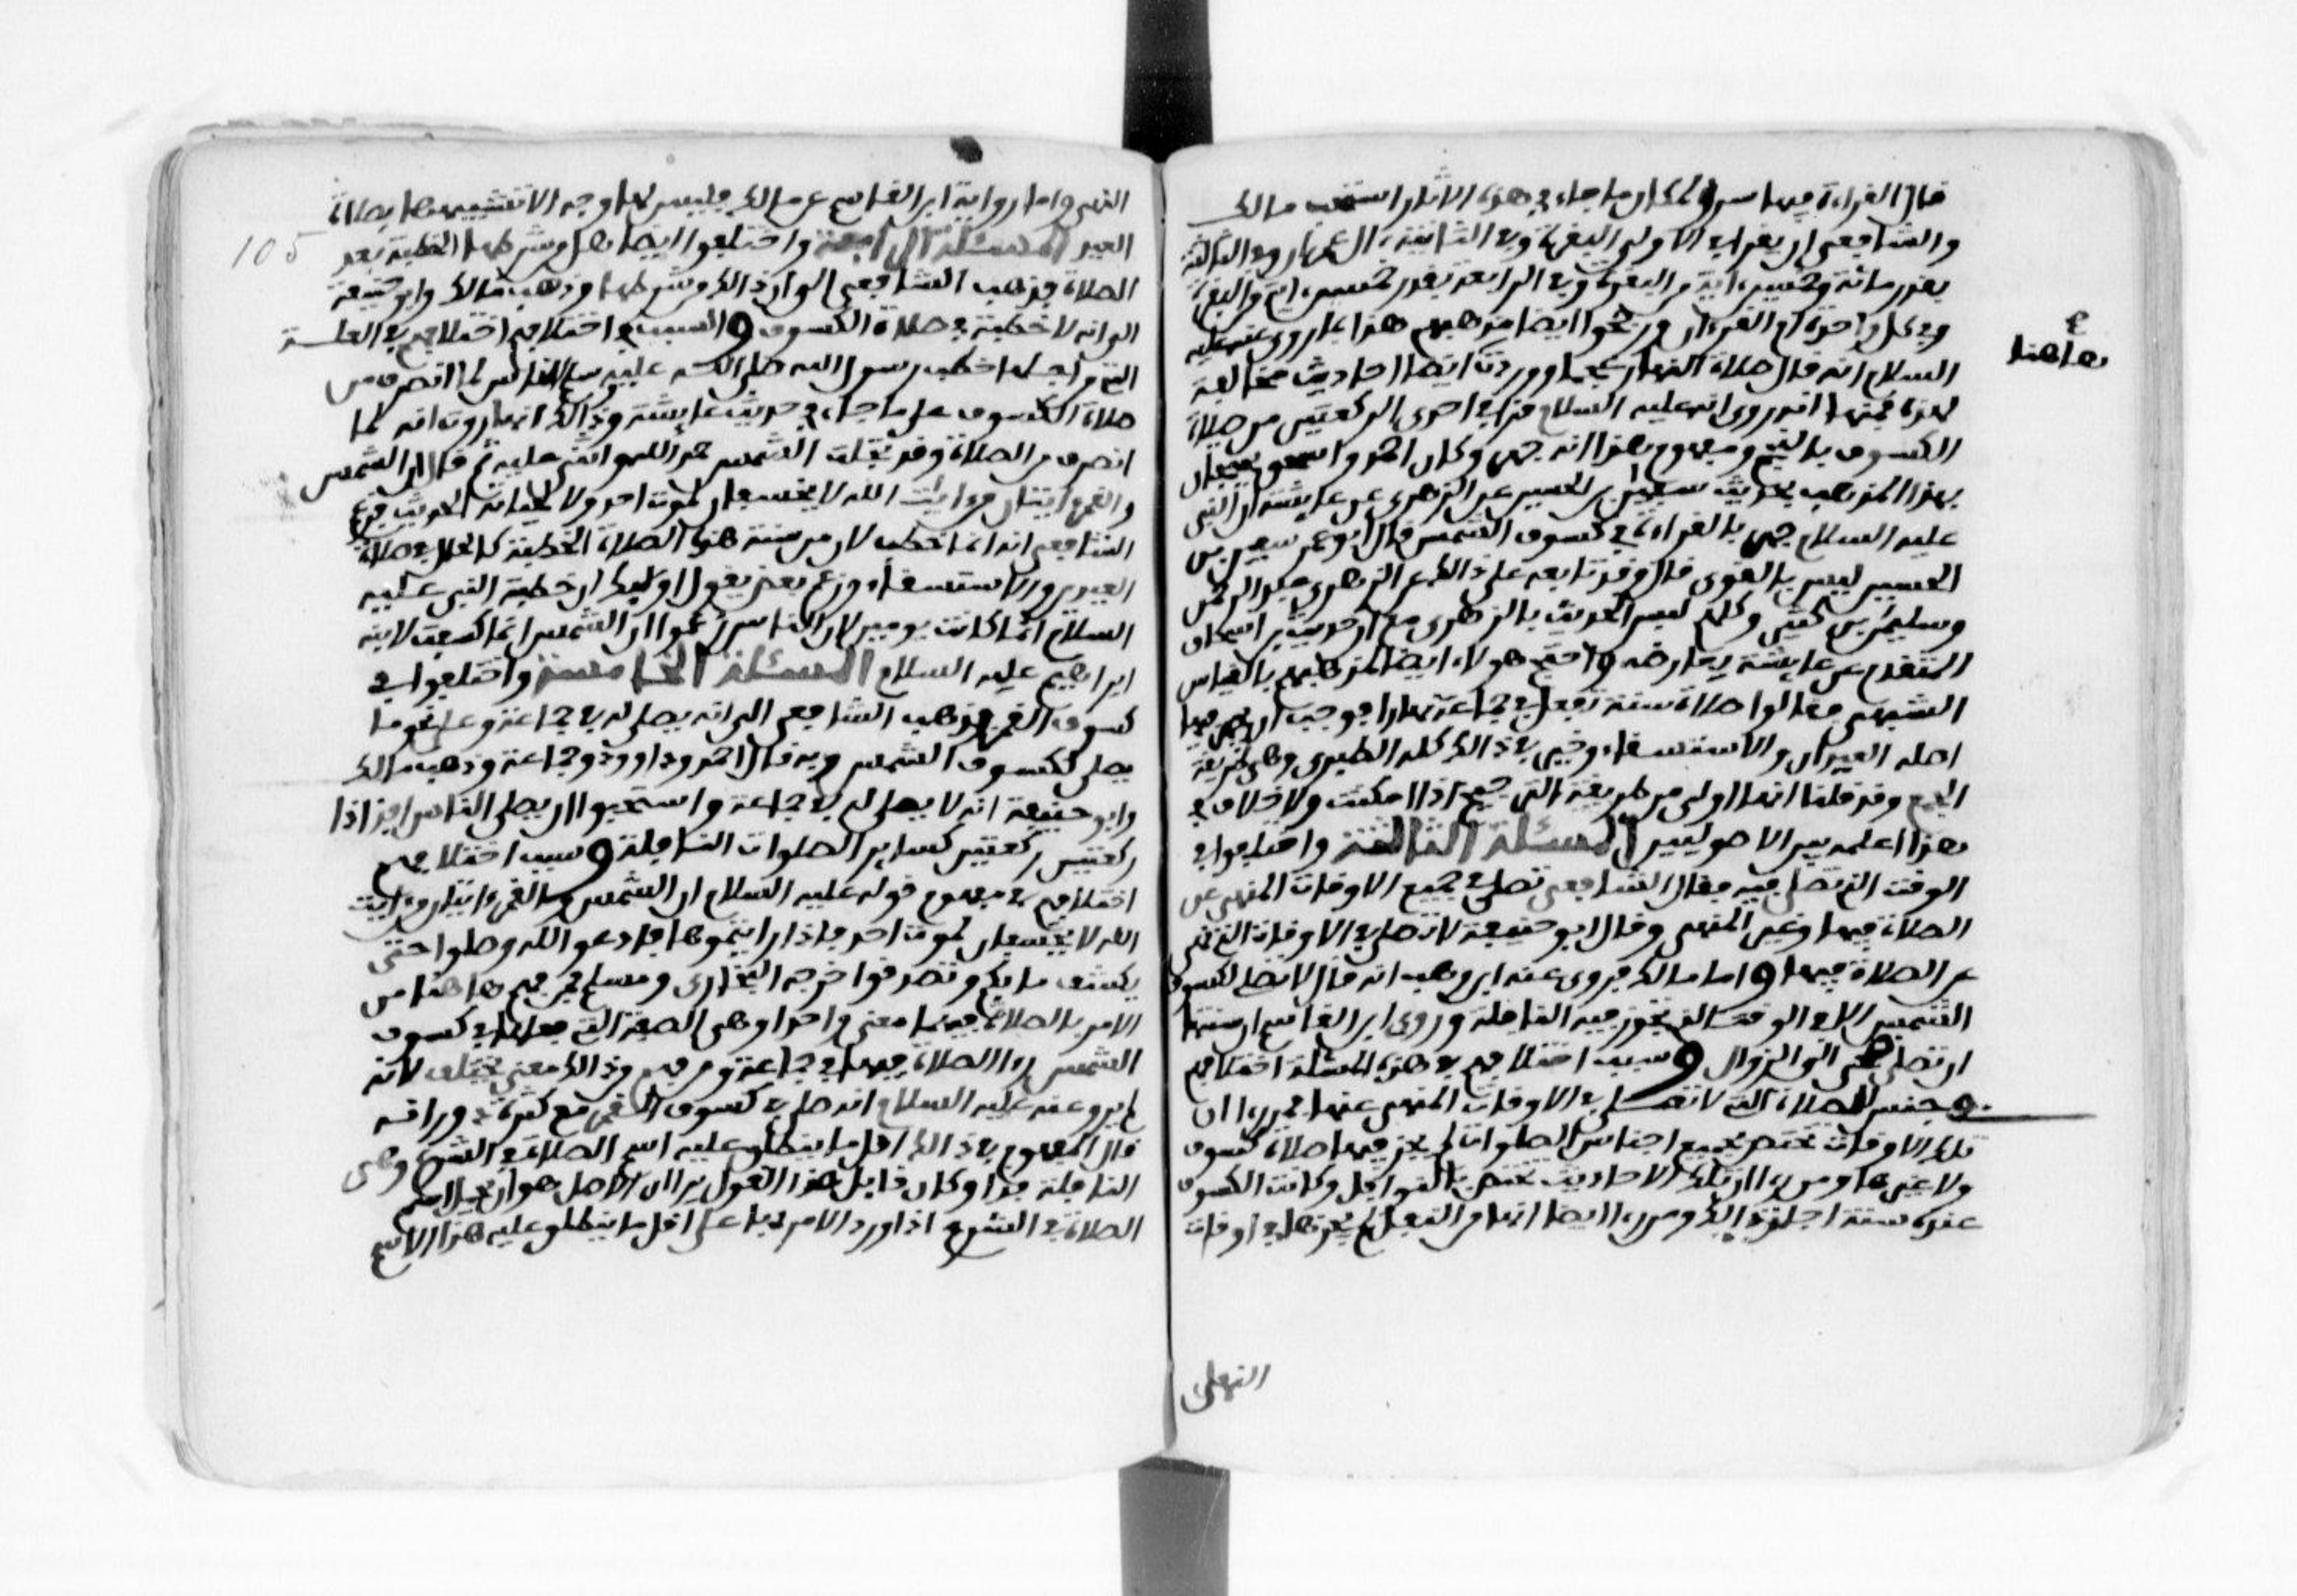 قال القراءة فيها سرا ولمكان ما جاء في هذه الاثار استحب مالك
والشافعي ان يقرأ في الاولى البقرة وفي الثانية ءال عمران وفي الثالثة
بقدر مائة وخمسين ءاية من البقرة وفي الرابعة بقدر خمسين ءاية من البقرة
وفي كل واحدة ام القرءان ورجحوا ايضا مذهبهم هذا بما روي عنه عليه
السلام انه قال صلاة النهار عجما ووردت ايضا احاديث مخالفة
لهذه فمنها انه روي انه عليه السلام قرأ في احدى الركعتين من صلاة
الكسوف بالنجم ومفهوم هذا انه جهر وكان احمد واسحق يحتجان
بهذا المذهب بحديث سفيان بن الحسين عن الزهري عن عايشة ان النبي
عليه السلام جهر بالقراءة في كسوف الشمس قال ابو عمر سفيان بن
الحسين ليس بالقوي قال وقد تابعه على ذالك عن الزهري عبد الرحمن
وسليمان بن كثير وكلهم ليس الحديث بالزهري مع ان حديث ابن اسحاق
المتقدم عن عايشة يعارضه واحتج هولاء ايضا لمذهبهم بالقياس
الشبهي فقالوا صلاة سنة تفعل في جماعة نهارا فوجب ان يجهر فيها
اصله العيدان والاستسقاء وخير في ذالك كله الطبري وهي طريقة
الجمع وقد قلنا انها اولى من طريقة الترجيح اذا امكنت ولا خلاف في
هذا اعلمه بين الاصوليين المسئلة الثالثة واختلفوا في
الوقت الذي تصلى فيه فقال الشافعي تصلى في جميع الاوقات المنهي عن
الصلاة فيها وغير المنهي وقال ابو حنيفة لا تصلى في الاوقات التي نهي
عن الصلاة فيها واما مالك فروى عنه ابن وهب انه قال لا يصلى لكسوف
الشمس الا في الوقت الذي تجوز فيه النافلة وروى ابن القاسم ان سنتها
ان تصلى ضحى الى الزوال وسبب اختلافهم في هذه المسئلة اختلافهم
في جنس الصلاة التي لا تصلى في الاوقات المنهي عنها فمن رءا ان
تلك الاوقات تختص بجميع اجناس الصلوات لم يجز فيها صلاة كسوف
ولا غيرها ومن رءا ان تلك الاحاديث تختص بالنوافل وكانت الكسوف
عنده سنة اجاز ذالك ومن رءا ايضا انها من النفل لم يجزها في اوقات
هاهنا
النهي
النهي واما رواية ابن القاسم عن مالك فليس لها وجه الا تشبيهها بصلاة
105
العيد المسئلة الرابعة واختلفوا ايضا هل من شرطها الخطبة بعد
الصلاة فذهب الشافعي الى ان ذالك من شرطها وذهب مالك وابو حنيفة
الى انه لا خطبة في صلاة الكسوف والسبب في اختلافهم اختلافهم في العلة
التي من اجلها خطب رسول الله صلى الله عليه وسلم الناس لما انصرف من
صلاة الكسوف على ما جاء في حديث عايشة وذالك انها روت انه لما
انصرف من الصلاة وقد تجلت الشمس حمد الله واثنى عليه ثم قال ان الشمس
والقمر ءايتان من ءايات الله لا يخسفان لموت احد ولا لحياته الحديث فزعم
الشافعي انه انما خطب لان من سنة هذه الصلاة الخطبة كالحال في صلاة
العيدين والاستسقاء وزعم بعض من يقول بقول اولئك ان خطبة النبي عليه
السلام انما كانت يوميذ لان الناس زعموا ان الشمس انما كسفت لابنه
ابراهيم عليه السلام المسئلة الخامسة واختلفوا في
كسوف القمر فذهب الشافعي الى انه يصلى له في جماعة وعلى نحو ما
يصلى لكسوف الشمس وبه قال احمد وداوود وجماعة وذهب مالك
وابو حنيفة انه لا يصلى له في جماعة واستحبوا ان يصلي الناس افذاذا
ركعتين ركعتين كساير الصلوات النافلة وسبب اختلافهم
اختلافهم في مفهوم قوله عليه السلام ان الشمس والقمر ءايتان من ءايات
الله لا يخسفان لموت احد فاذا رايتموها فادعوا الله وصلوا حتى
يكشف ما بكم وتصدقوا خرجه البخاري ومسلم فمن فهم هاهنا من
الامر بالصلاة فيهما معنى واحدا وهي الصفة التي فعلها في كسوف
الشمس رءا الصلاة فيها في جماعة ومن فهم من ذالك معنى مختلف لانه
لم يرو عنه عليه السلام انه صلى في كسوف القمر مع كثرة دورانه
قال المفهوم في ذالك اقل ما ينطلق عليه اسم الصلاة في الشرع وهي
النافلة فذا وكان قايل هذا القول يرا ان الاصل هو ان يحمل اسم
الصلاة في الشرع اذا ورد الامر بها على اقل ما ينطلق عليه هذا الاسم